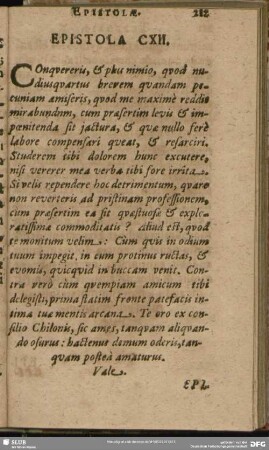 EPISTOLÆ. 212
EPISTOLA CXII.
COnquereris, & plus nimio, quod nu-
diusquartus brevem quandam pe-
cuniam amiseris, quod me maximè reddit
mirabundum, cum præsertim levis & im-
pœnitenda sit jactura, & quæ nullo ferè
labore compensari queat, & resarciri.
Studerem tibi dolorem hunc excutere,
nisi vererer mea verba tibi fore irrita.
Si velis rependere hoc detrimentum, quare
non reverteris ad pristinam professionem,
cum præsertim ea sit quæstuosæ & explo-
ratissimæ commoditatis? Aliud est, quod
te monitum velim: Cum quis in odium
tuum impegit, in eum protinus ructas, &
evomis, quicquid in buccam venit. Con-
tra verò cùm quempiam amicum tibi
delegisti, prima statim fronte patefacis in-
tima tuæ mentis arcana. Te vro ex con-
silio Chilonis, sic ames, tanquam aliquan-
do osurus: hactenus demum oderis, tan-
quam posteà amaturus.
Vale.
EPI-
SLUB
DFG